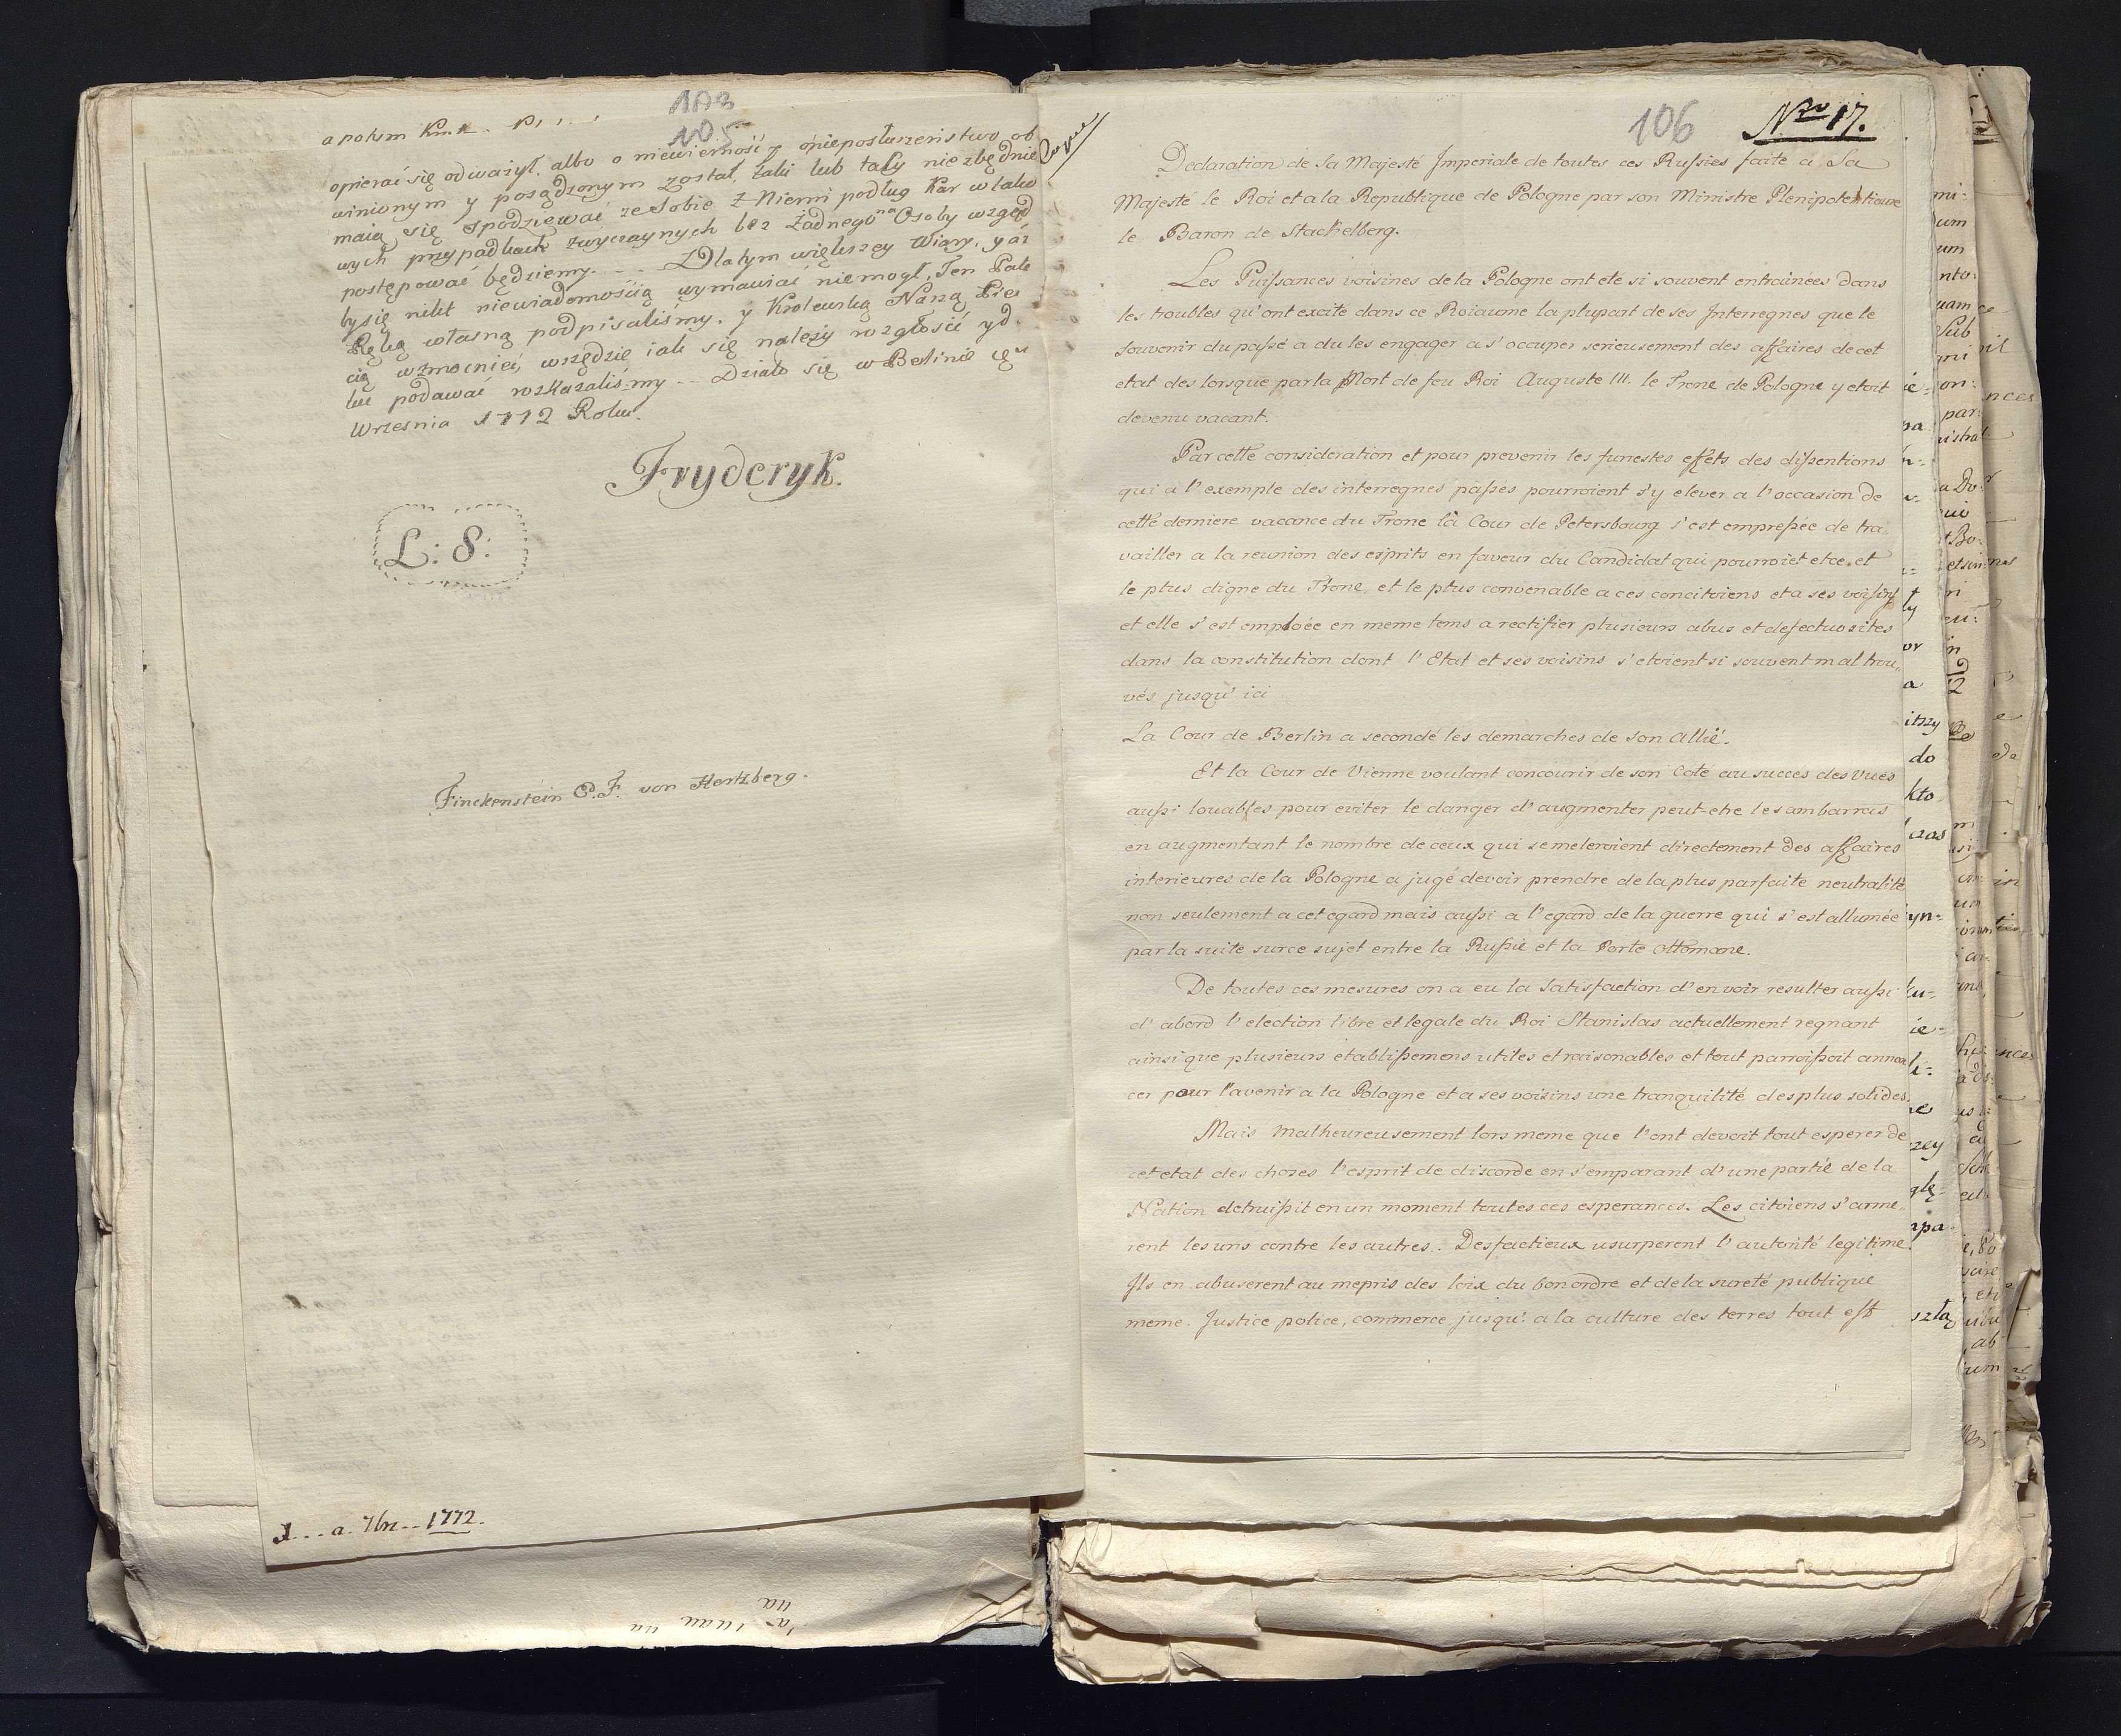 103
105
a potym
opierać się odważył, albo o niewierność y o nieposłuszeństwo ob
winionym y posądzonym został, taki lub taky niezbędnie
maią się spodziewać ze sobie z Niemi podług Kar w tako
wych przypadkach zwyczaynych bez żadnego na Osoby wzgęd
postępować będziemy. -- Dlatym większey Wiary, y áż
by się nikt niewiadomością wymawiać nie mogł, Ten Pate
Ręką własną podpisaliśmy, y Krolewską Naszą Pie
cią wzmocnieć, wszędzie iak się należy rozgłosić y d
ku podawać rozkazaliśmy -- Działo się w Berlinie
Wrzesnia 1772 Roku.
Fryderyk.
L: S:
Finckenstein E. F. von Hertzberg.
d... a. 7br.. 1772.
106
Nro 17.
Declaration de Sa Majesté Imperiale de toutes ces Russies faite a Sa
Majesté le Roi et a la Republique de Pologne par son Ministre Plenipotentiaire
le Baron de Stackelberg.
Les Puissances voisines de la Pologne ont eté si souvent entrainées dans
les troubles qu'ont excité dans ce Roiaume la plupart de ses Interregnes que le
souvenir du passé a du les engager a s'occuper serieusement des affaires de cet
etat des lorsque par la Mort de feu Roi Auguste III. le Trone de Pologne y etoit
devenu vacant.
Par cette consideration et pour prevenir les funestes effets des dissentions
qui a l'exemple des interregnes passes pourroient s'y elever a l'occasion de
cette derniere vacance du Trone la Cour de Petersbourg s'est empressée de tra-
vailler a la reunion des esprits en faveur du Candidat qui pourroiet etce et
le plus digne du Trone, et le plus convenable a ces concitoiens et a ses voisins
et elle s'est emploée en meme tems a rectifier plusieurs abus et defectuosites
dans la constitution dont l'Etat et ses voisins s'etoient si souvent mal trou-
vés jusqu'ici
La Cour de Berlin a secondé les demarches de son Allié.
Et la Cour de Vienne voulant concourir de son Coté au succes des Vues
aussi louables pour eviter le danger d'augmenter peut-etre les ambarras
en augmentant le nombre de ceux qui se meleroient directement des affaires
interieures de la Pologne a jugé devoir prendre de la plus parfaite neutralité
non seulement a cet egard mais aussi a l'egard de la guerre qui s'est allumée
par la suite sur ce sujet entre la Russie et la Porte Ottomane.
De toutes ces mesures on a eu la Satisfaction d'en voir resulter aussi
d'abord l'election libre et legale du Roi Stanislas actuellement regnant
ainsi que plusieurs etablissemens utiles et raisonables et tout parroissoit annon
cer pour l'avenir a la Pologne et a ses voisins une tranquilité des plus solides.
Mais malheureusement lors meme que l'ont devoit tout esperer de
cet etat des choses l'esprit de discorde en s'emparant d'une partie de la
Nation detruissit en un moment toutes ces esperances. Les citoiens s'arme-
rent les uns contre les autres. Des factieux usurperent l'autorité legitime.
Ils en abuserent au mepris des loix du bon ordre et de la sureté publique
meme. Justice police, commerce, jusqu'a la culture des terres tout est